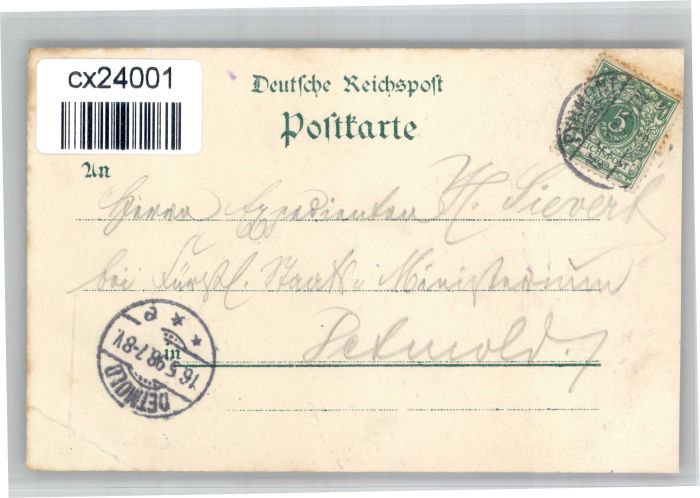 cx24001
Deutsche Reichspost
Postkarte
An
5
REICHSPOST
Herrn Expedienten H. Sievert
bei Fürstl. Staats-Ministerium
in Detmold.
DETMOLD
16.5.98.7-8V.
* * e